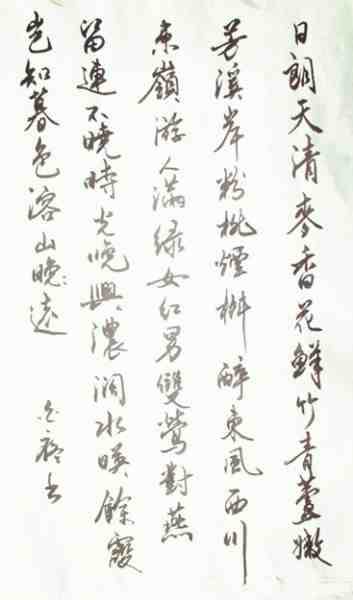 日朗天清麥香花鮮竹青蘆嫩
芳溪岸粉桃煙柳醉東風西川
東嶺游人滿綠女紅男雙鶯對燕
留連不曉時光晚興濃澗水暎餘霞
豈知暮色溶山晚遠
書